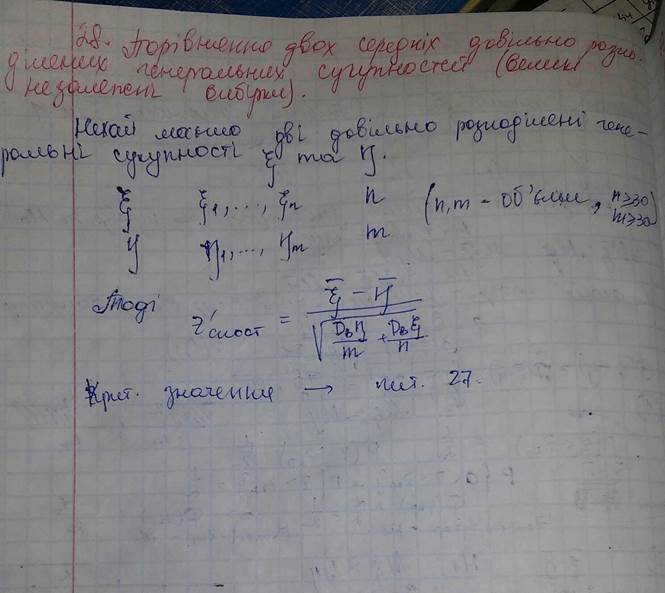 28. Порівняння двох середніх довільно розпо-
ділених генеральних сукупностей (великі
незалежні вибірки).
Нехай маємо дві довільно розподілені гене-
ральні сукупності ξ та η.
ξ ξ₁,...,ξₙ n (n, m - об'єми, n≥30
η η₁,...,ηₘ m m≥30
Тоді z'спост = (ξ̄ - η̄) / √(Dвη/m + Dвξ/n)
Крит. значення → пит. 27.